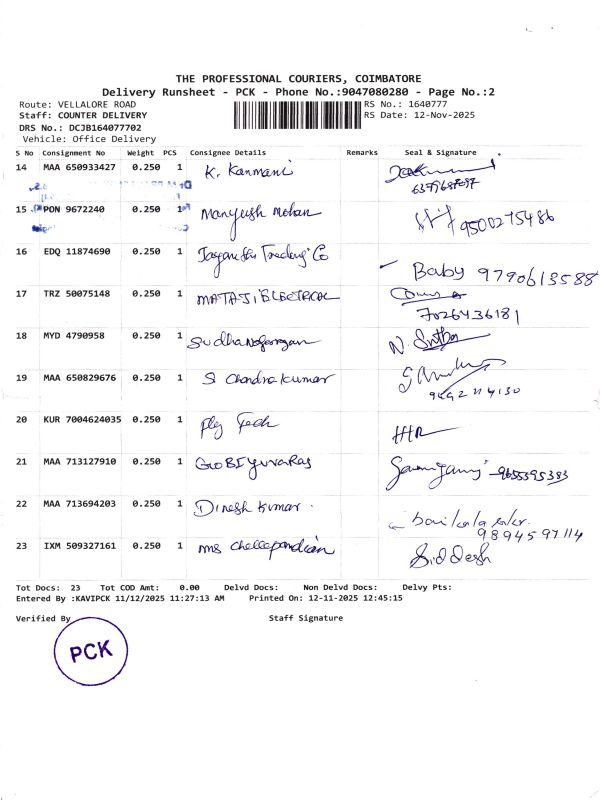 THE PROFESSIONAL COURIERS, COIMBATORE
Delivery Runsheet - PCK - Phone No.:9047080280 - Page No.:2
Route: VELLALORE ROAD RS No.: 1640777
Staff: COUNTER DELIVERY RS Date: 12-Nov-2025
DRS No.: DCJB164077702
Vehicle: Office Delivery
S No Consignment No Weight PCS Consignee Details Remarks Seal & Signature
14 MAA 650933427 0.250 1 K. Kanmani
15 PON 9672240 0.250 1 Manyush Mohan 9500275486
16 EDQ 11874690 0.250 1 Trading Co Baby 9790613588
17 TRZ 50075148 0.250 1 MATAJI ELECTRICAL
7026436181
18 MYD 4790958 0.250 1
19 MAA 650829676 0.250 1 S Chandra kumar
20 KUR 7004624035 0.250 1 Ply Tech
21 MAA 713127910 0.250 1 GOBI YUVARAJ 9655395383
22 MAA 713694203 0.250 1 Dinesh Kumar.
9894597114
23 IXM 509327161 0.250 1 mrs chellapandian Siddesh
Tot Docs: 23 Tot COD Amt: 0.00 Delvd Docs: Non Delvd Docs: Delvy Pts:
Entered By :KAVIPCK 11/12/2025 11:27:13 AM Printed On: 12-11-2025 12:45:15
Verified By Staff Signature
PCK